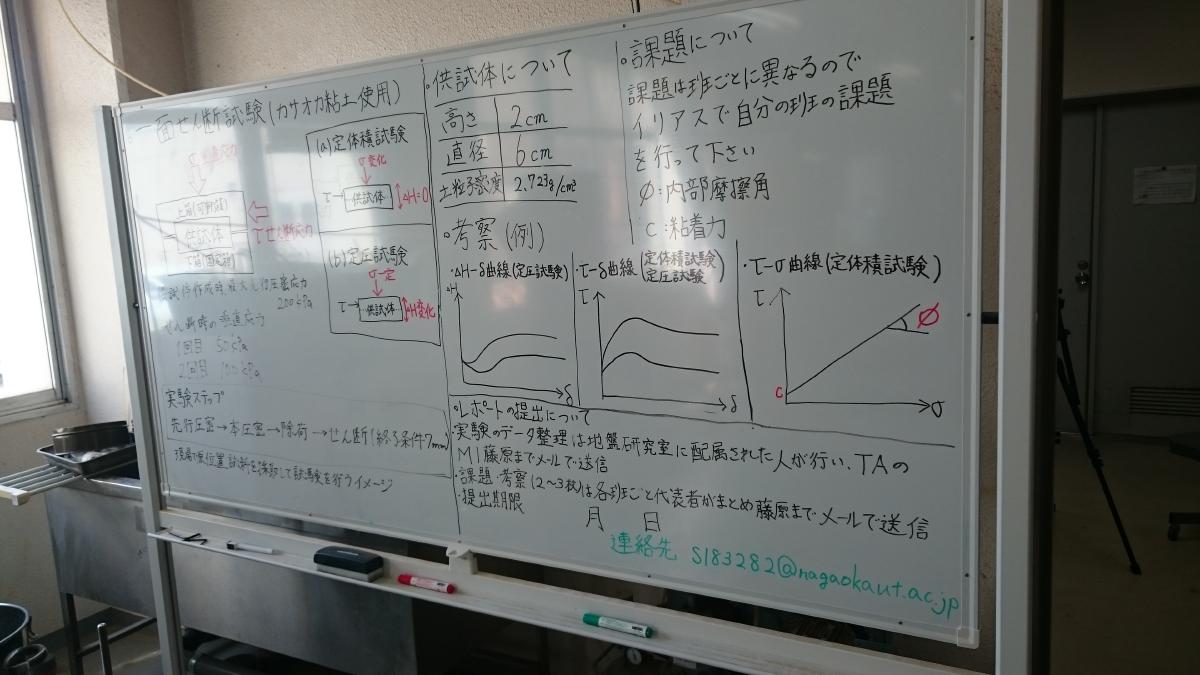 一面せん断試験(カサオカ粘土使用)
σ:垂直応力
上箱(可動箱)
供試体
τ:せん断応力
下箱(固定箱)
(a)定体積試験
σ変化
τ→
供試体
ΔH=0
(b)定圧試験
σ一定
τ→
供試体
H変化
200kPa
せん断時の垂直応力
1回目 50kPa
2回目 100kPa
実験ステップ
先行圧密→本圧密→除荷→せん断(終了条件7mm)
現場で原位置試料を採取して試験を行うイメージ
・供試体について
高さ 2cm
直径 6cm
土粒子密度 2.723g/cm³
・課題について
課題は班ごとに異なるので
イリアスで自分の班の課題
を行って下さい
φ:内部摩擦角
c:粘着力
・考察(例)
・ΔH-δ曲線(定圧試験)
δ
・τ-δ曲線(定体積試験 定圧試験)
τ
δ
・τ-σ曲線(定体積試験)
τ
φ
c
σ
・レポートの提出について
・実験のデータ整理は地盤研究室に配属された人が行い、TAの
M1藤原までメールで送信
・課題・考察(2〜3枚)は各班ごと代表者がまとめ藤原までメールで送信
・提出期限
月 日
連絡先 s183282@nagaokaut.ac.jp